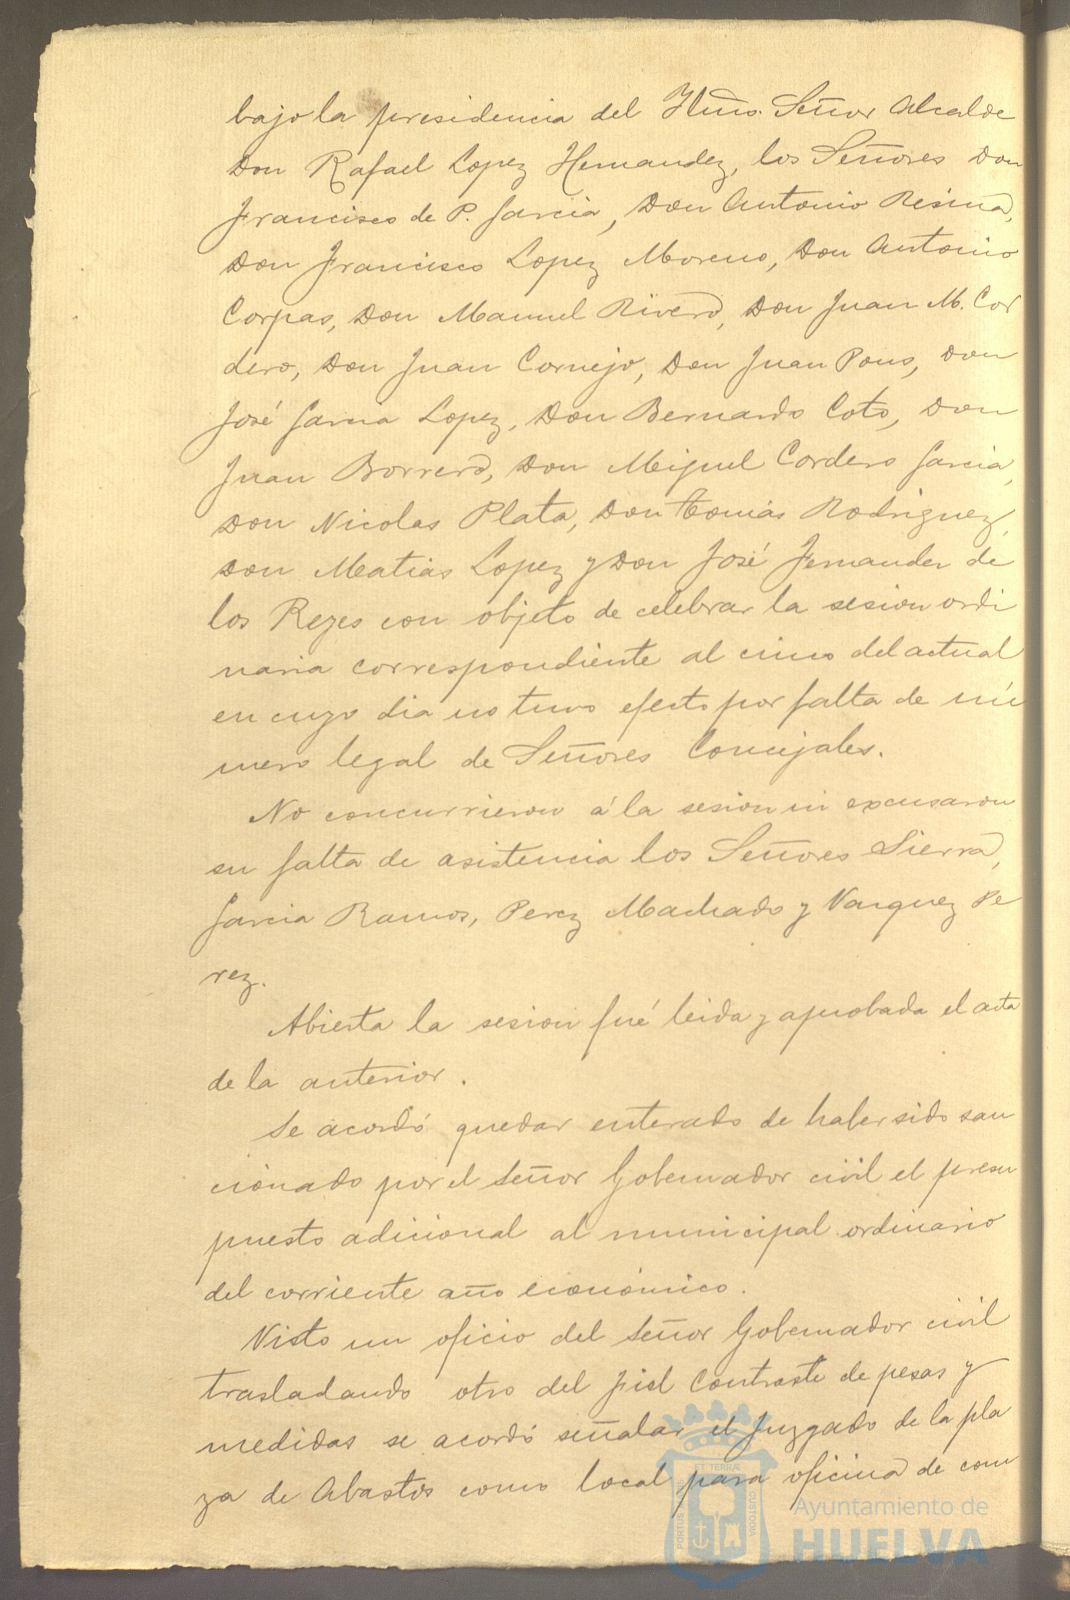 bajo la presidencia del Iltmo. Señor Alcalde
Don Rafael Lopez Hernandez, los Señores Don
Francisco de P. Garcia, Don Antonio Resina,
Don Francisco Lopez Moreno, Don Antonio
Corpas, Don Manuel Rivero, Don Juan M. Cor
dero, Don Juan Cornejo, Don Juan Pons, Don
José Garcia Lopez, Don Bernardo Coto, Don
Juan Borrero, Don Miguel Cordero Garcia,
Don Nicolas Plata, Don Tomás Rodriguez,
Don Matias Lopez y Don José Fernandez de
los Reyes con objeto de celebrar la sesion ordi
naria correspondiente al cinco del actual
en cuyo dia no tuvo efecto por falta de nú
mero legal de Señores Concejales.
No concurrieron á la sesion ni excusaron
su falta de asistencia los Señores Sierra,
Garcia Ramos, Perez Machado y Vazquez Pe
rez.
Abierta la sesion fué leida y aprobada el acta
de la anterior.
Se acordó quedar enterado de haber sido san
cionado por el Señor Gobernador civil el presu
puesto adicional al municipal ordinario
del corriente año económico.
Visto un oficio del Señor Gobernador civil
trasladando otro del Fiel Contraste de pesas y
medidas se acordó señalar el Juzgado de la pla
za de Abastos como local para oficina de com
PORTUS
ET TERRAE
CUSTODIA
Ayuntamiento de
HUELVA